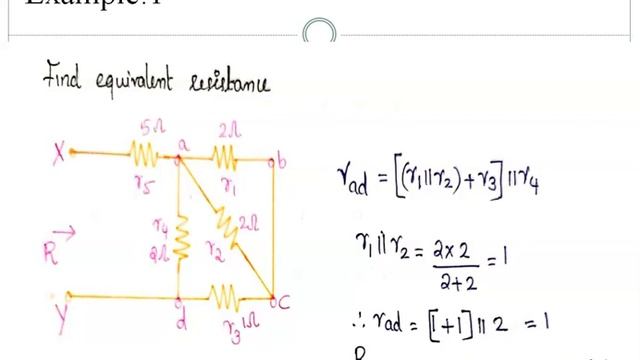 Example:1
Find equivalent resistance
X
5Ω
r5
a
2Ω
r1
b
R
r4
2Ω
r2
2Ω
Y
d
r3
1Ω
c
rad = [(r1||r2)+r3]||r4
r1||r2 = 2×2 / 2+2 = 1
∴ rad = [1+1] || 2 = 1